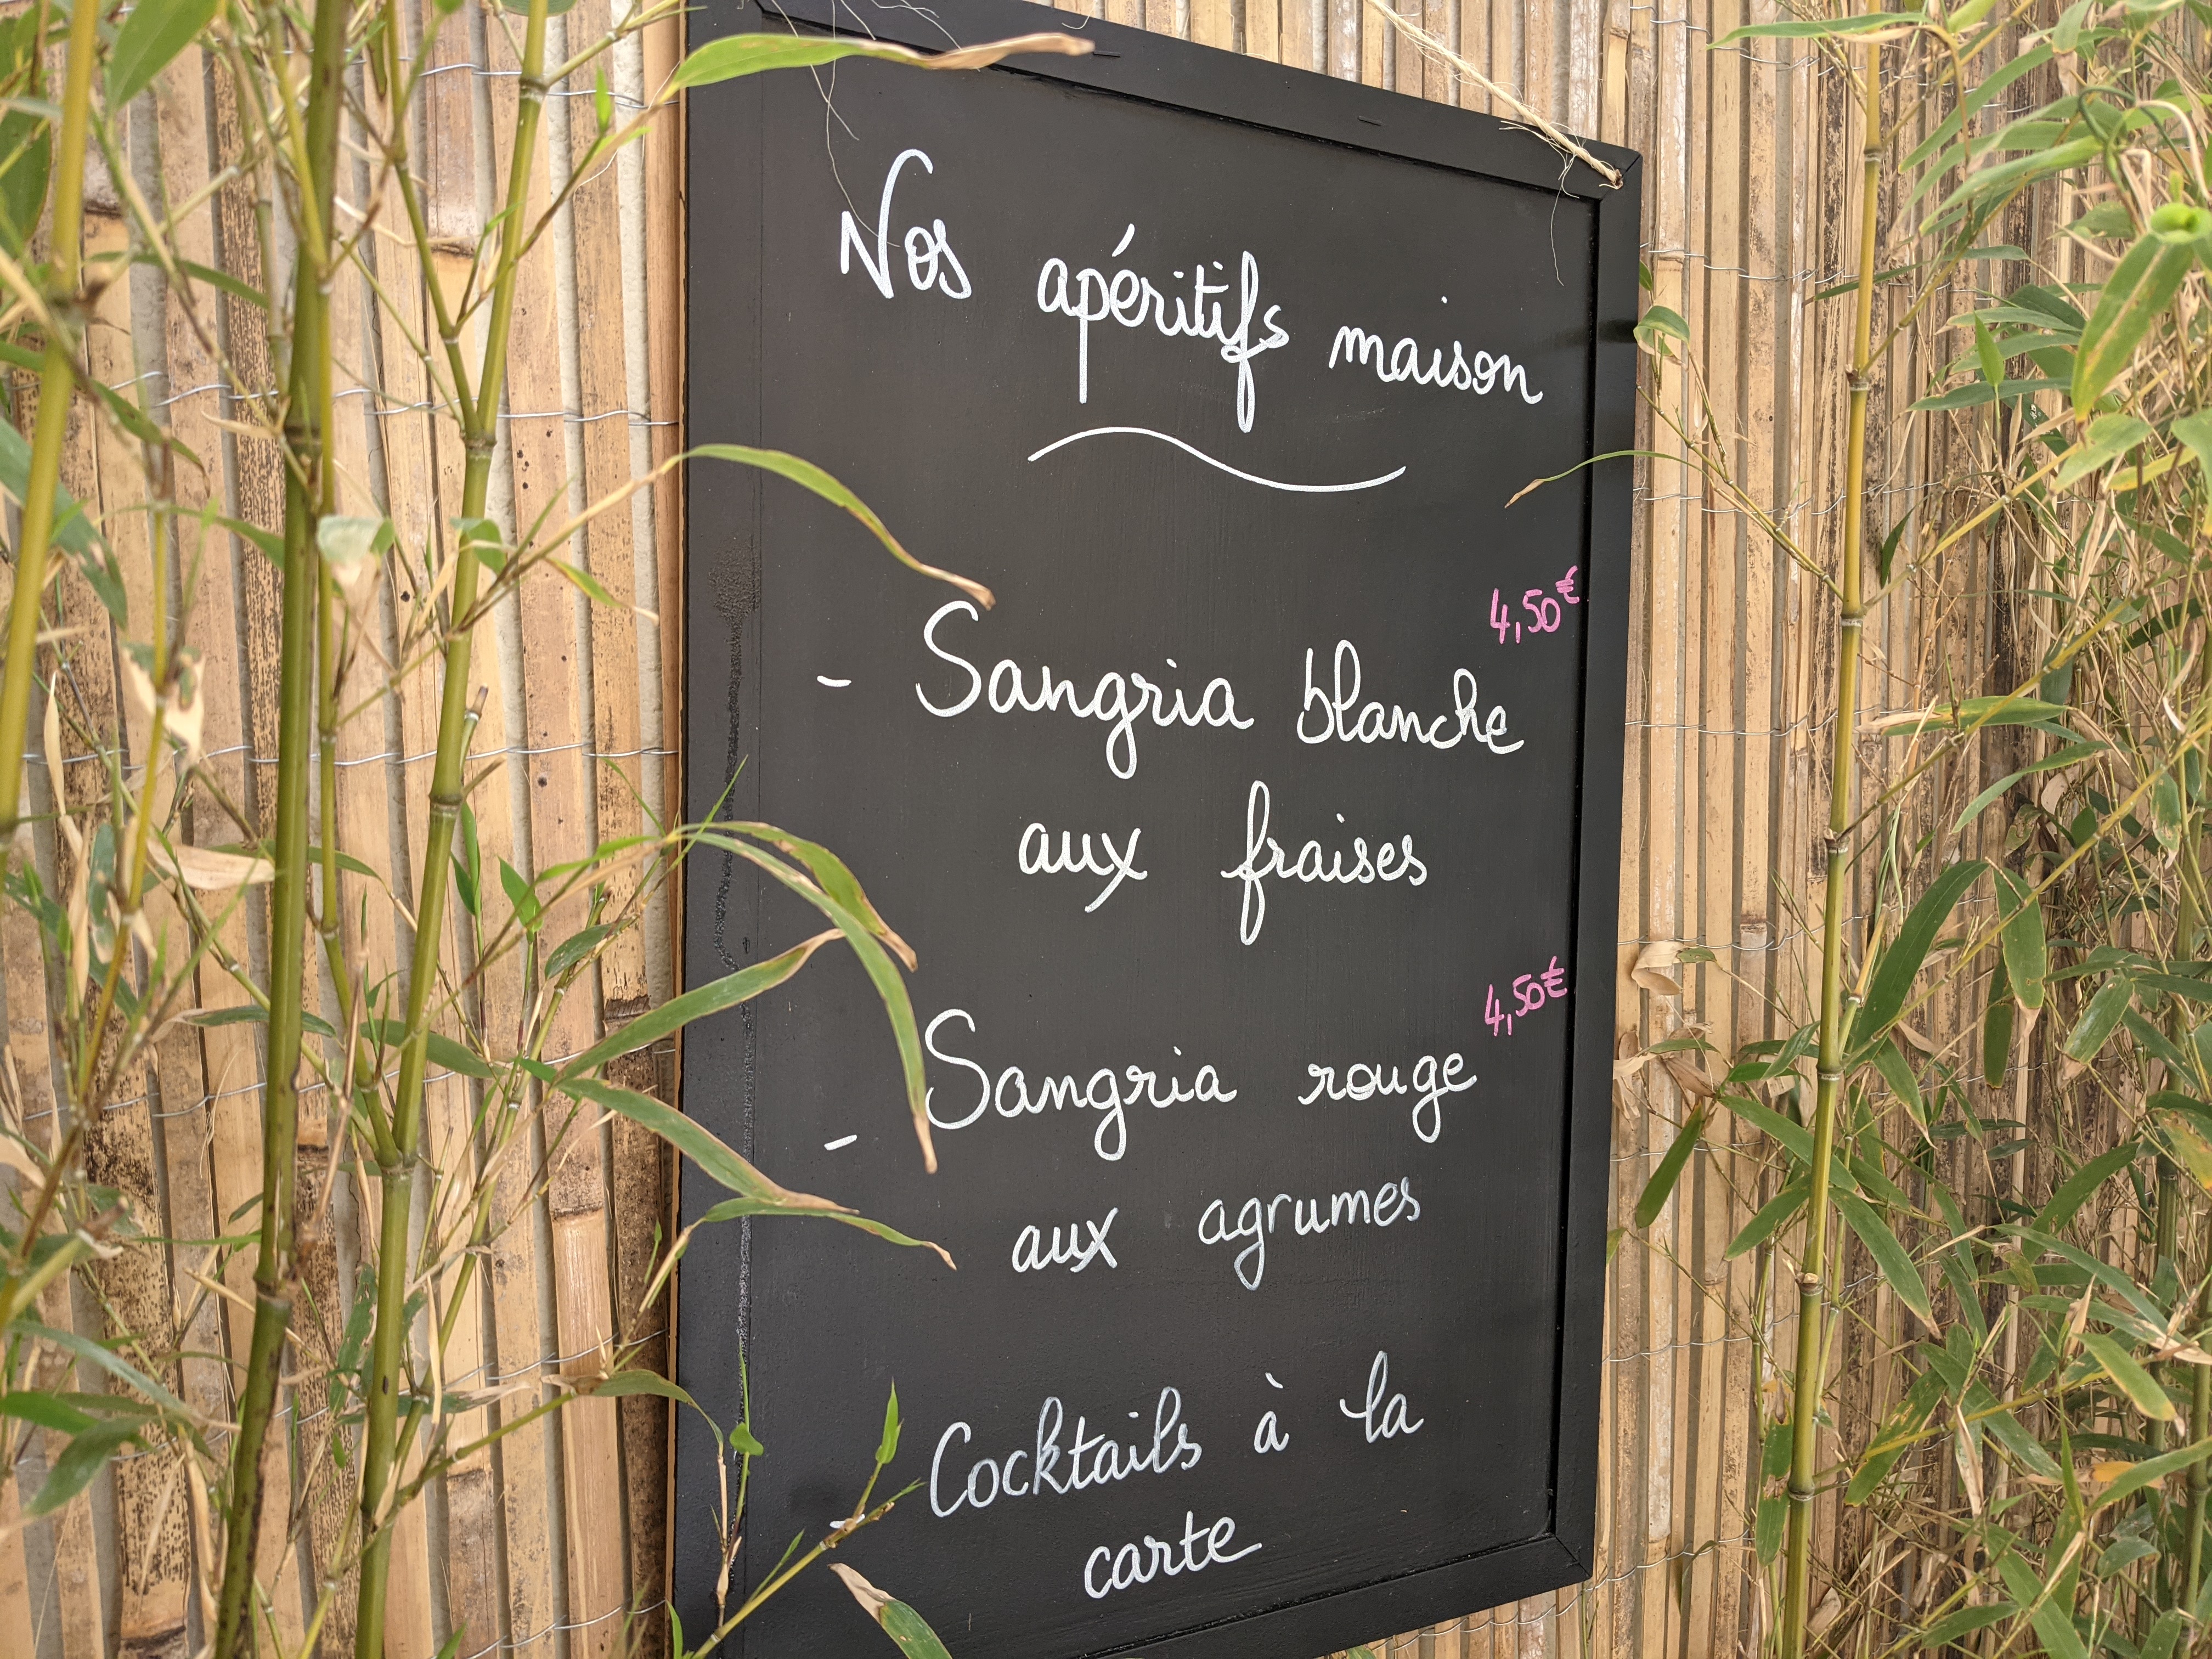 Nos apéritifs maison
4,50€
- Sangria blanche
aux fraises
4,50€
- Sangria rouge
aux agrumes
- Cocktails à la
carte